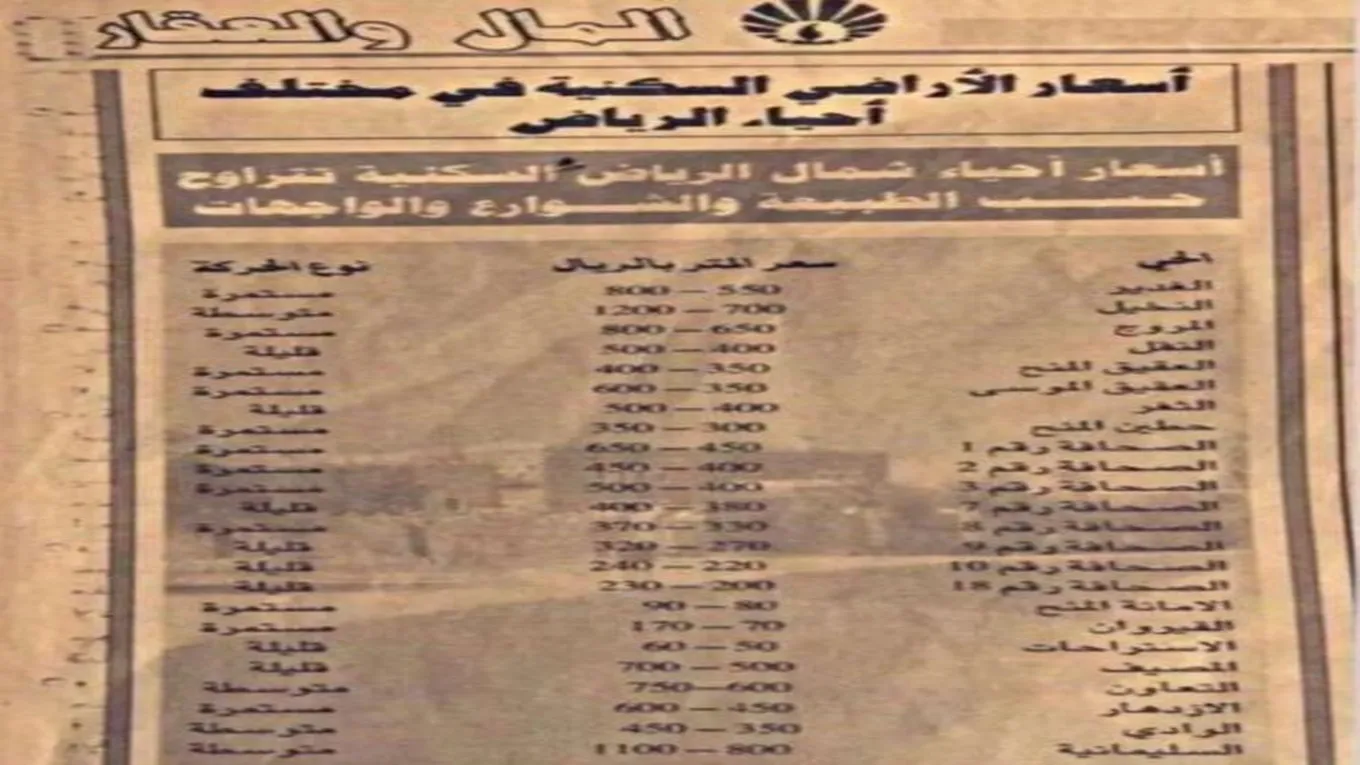 المال والعقار
أسعار الأراضي السكنية في مختلف
أحياء الرياض
أسعار أحياء شمال الرياض السكنية تتراوح
حسب الطبيعة والشوارع والواجهات
الحي سعر المتر بالريال نوع الحركة
الغدير 550 – 800 مستمرة
النخيل 700 – 1200 متوسطة
المروج 650 – 800 مستمرة
النفل 400 – 500 قليلة
العقيق المنح 350 – 400 مستمرة
العقيق الموسى 350 – 600 مستمرة
400 – 500 قليلة
حطين المنح 300 – 350 مستمرة
الصحافة رقم 1 450 – 650 مستمرة
الصحافة رقم 2 400 – 450 مستمرة
الصحافة رقم 3 400 – 500 مستمرة
الصحافة رقم 7 380 – 400 قليلة
الصحافة رقم 8 330 – 370 مستمرة
الصحافة رقم 9 270 – 320 قليلة
الصحافة رقم 10 220 – 240 قليلة
الصحافة رقم 18 200 – 230 قليلة
الامانة المنح 80 – 90 مستمرة
القيروان 70 – 170 مستمرة
الاستراحات 50 – 60 قليلة
المصيف 500 – 700 قليلة
التعاون 600 – 750 متوسطة
الازدهار 450 – 600 مستمرة
الوادي 350 – 450 متوسطة
السليمانية 800 – 1100 متوسطة